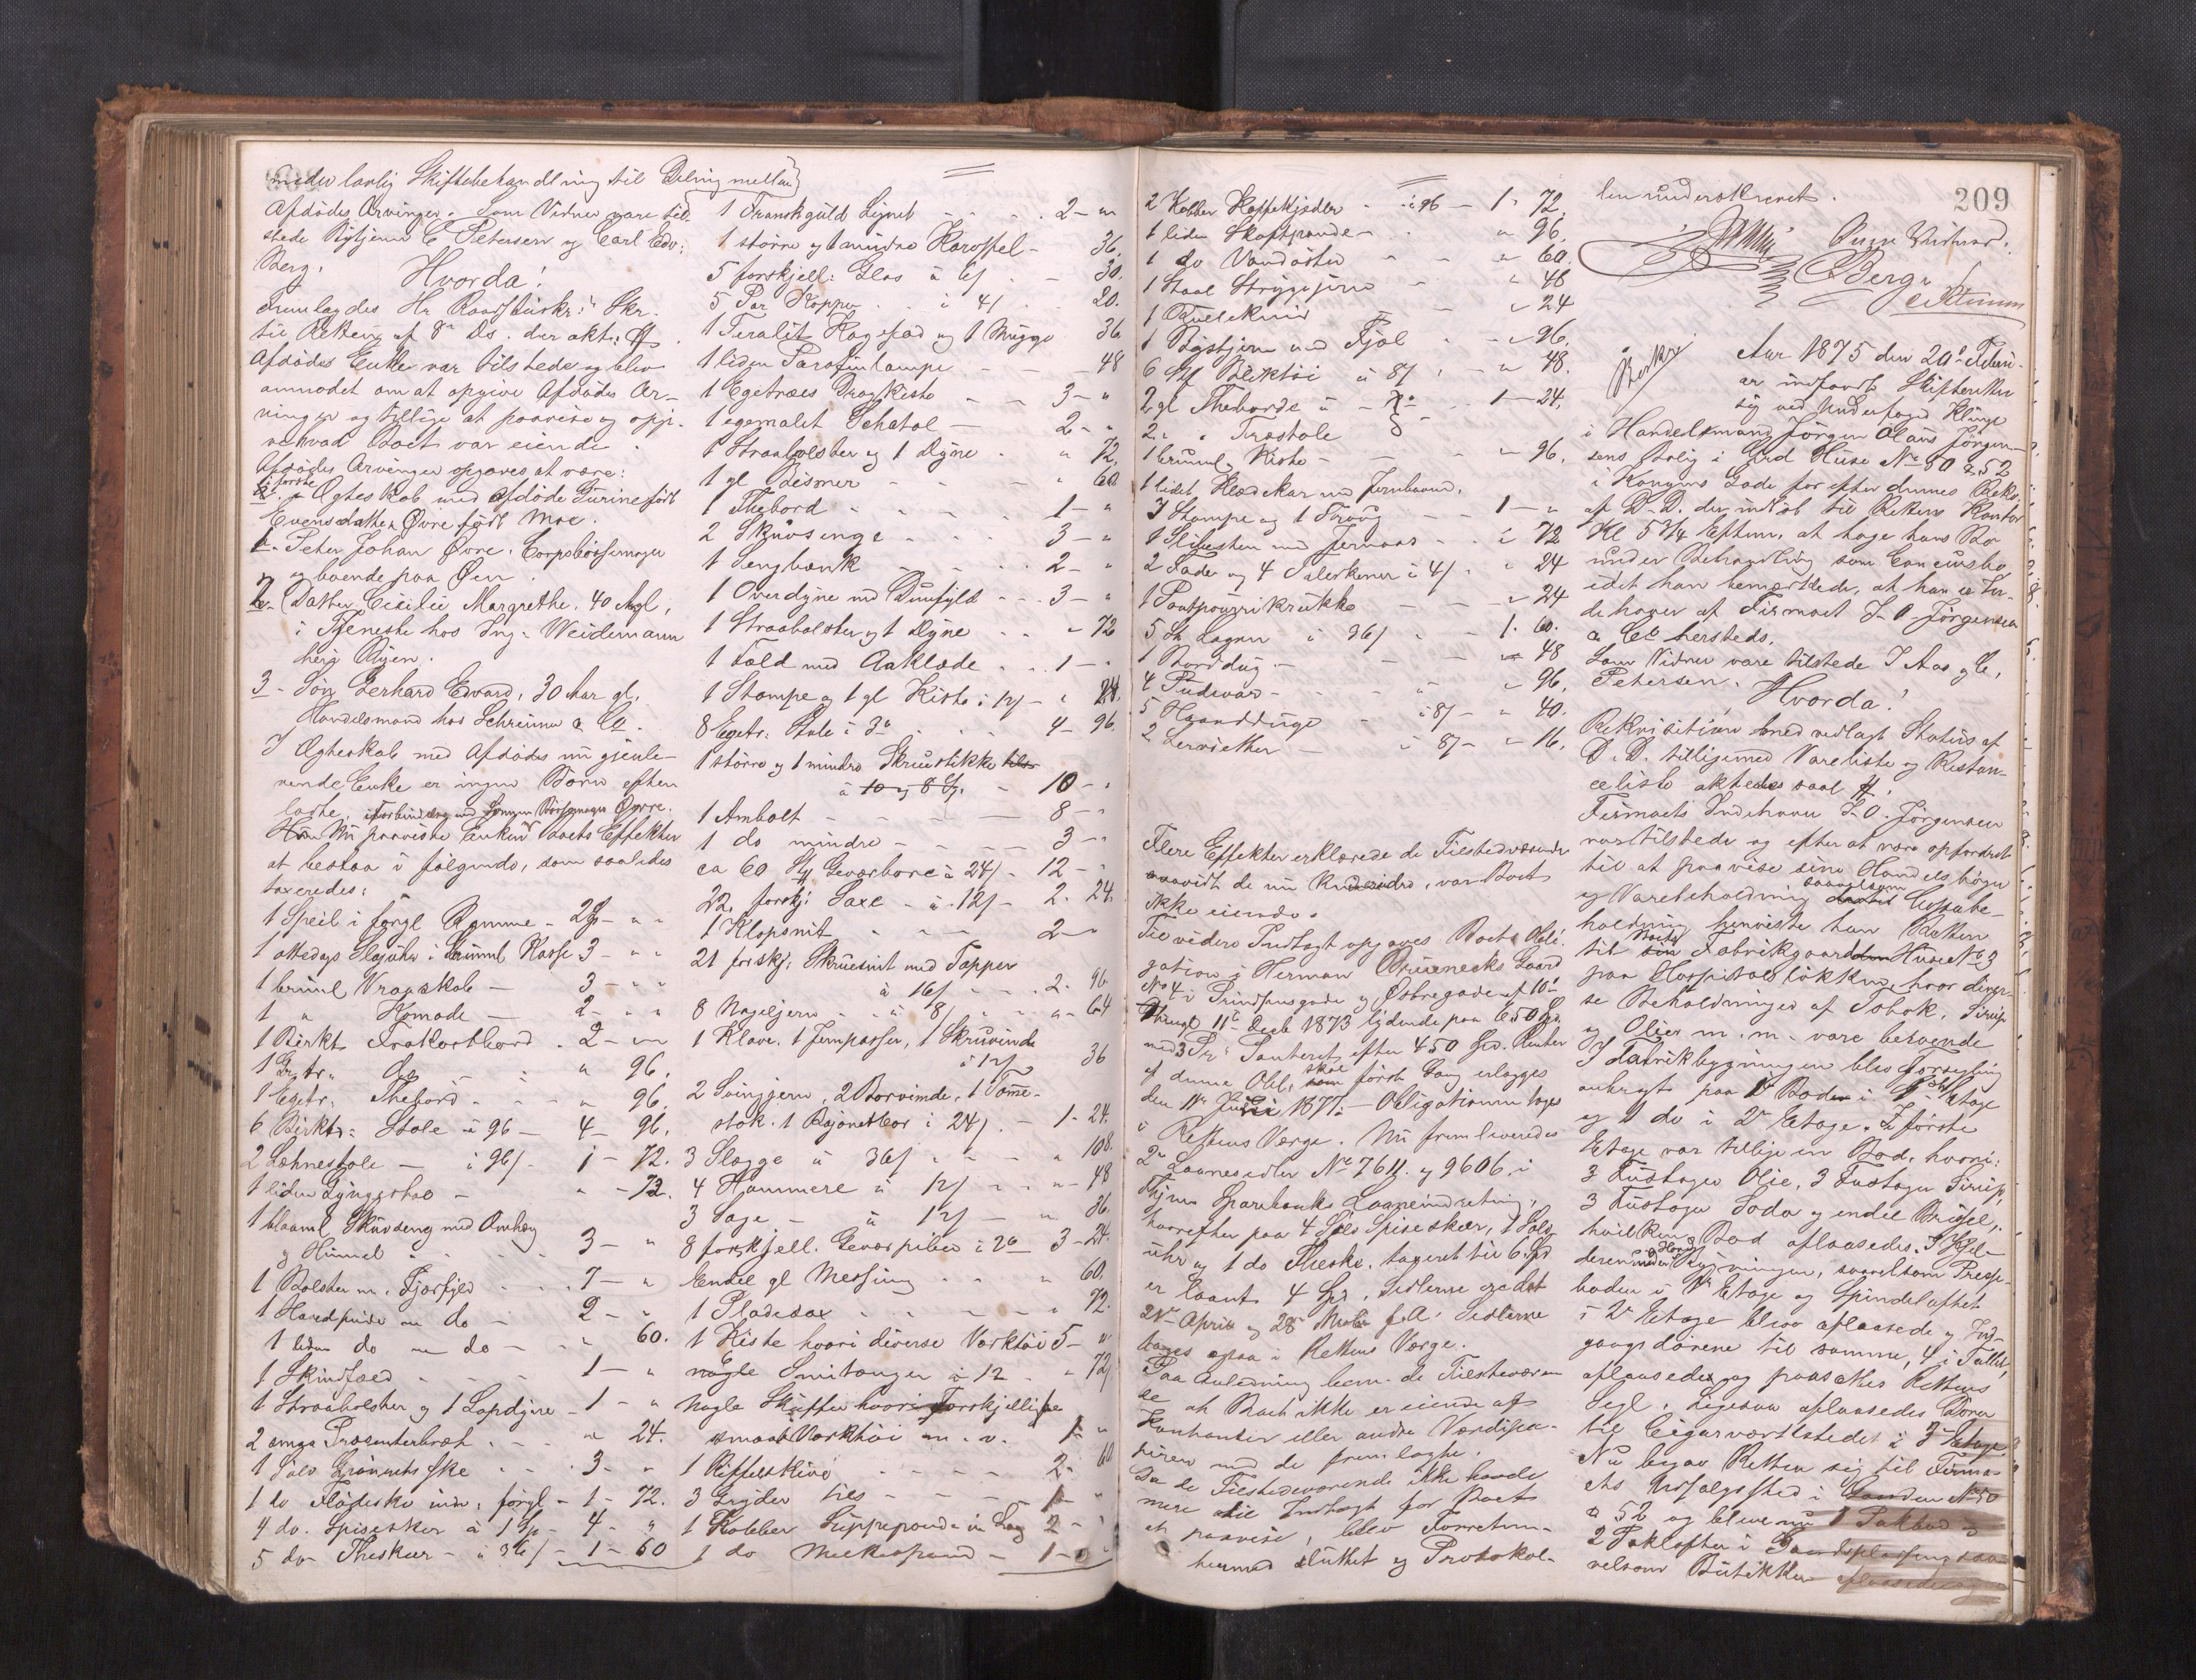 under lovlig Skiftebehandling til Deling mellem
Afdødes Arvinger. Som Vidner vare til-
stede Bytjener C Petersen og Carl Edv.
Berg.
Hvorda!
Fremlagdes Hr Raadstuskr.'s Skr.
til Retten af 8de Ds. der akt:
Afdødes Enke var tilstede og blev
anmodet om at opgive Afdødes Ar-
vinger og tillige at paavise og opgi-
ve hvad Boet var eiende.
Afdødes Arvinger opgaves at være:
i første
Ægteskab med afdøde Gurine født
Evensdatter Øvre født Moe.
1. Peter Johan Øvre. Corpsbøssemager
og boende paa Øen.
2. Datter Cisilie Margrethe. 40 Aar gl,
i Tjeneste hos Ing. Weidemann
her i Byen.
3 - Søn Gerhard Edvard, 30 Aar gl.
Handelsmand hos Schreiner & Co.
I Ægteskab med Afdødes nu gjenle-
vende Enke er ingen Børn efter-
ladte. i Forbindelse med Sønnen Bøssemager Øvre.
Nu paaviste Enken Boets Effekter
at bestaa i følgende, som saaledes
taxeredes:
1 Speil i forgl Ramme - 2 - " "
1 ottedags Slaguhr i brunml Kasse 3 - " "
1 brunml Vragskab - 3 - " "
1 " Komode - 2 - " "
1 Birktr Frokostbord . 2 - " "
1 Egtr. do - " 96.
1 Egetr. Thebord - " 96.
6 Birktr: Stole à 96 - 4 - 96.
2 Lehnestole - à 96/ - 1 - 72.
1 liden Gyngestol - " - 72.
1 blaaml Skuvseng med Omhæng
og Himmel " 3 - "
1 Bolster m. Fjærfyld 7 - "
1 Hovedpude m do - 2 - "
1 liden do m do - " 60.
1 Skindfæld 1 - "
1 Straabolster og 1 Lapdyne - 1 - "
2 smaa Præsenterbræt " 24.
1 Sølv Grønnets ske 3 - "
1 do Flødeske indv. forgl - 1 - 72.
4 do. Spiseskeer à 1 Sp - 4 - "
5 do Theskeer - à 36/ - 1 - 60
1 Franskguld Signet 2 - "
1 større og 1 mindre Karaffel - 36.
5 forskjell: Glas à 6/ - 30.
5 Par Kopper à 4/ 20.
1 Feralit Kagefad og 1 Mugge 36
1 liden Parafinlampe - 48
1 Egetræes Dragkiste 3 - "
1 egemalet Schatol - 2 - "
1 Straabolster og 1 Dyne " 72.
1 gl Bismer " 60
1 Thebord 1 - "
2 Skuvsenge 3 - "
1 Sengbænk 2 - "
1 Overdyne med Dunfyld 3 - "
1 Straabolster og 1 Dyne " 72
1 Fæld med Aaklæde 1 - "
1 Stampe og 1 gl Kiste à 12/ - " 24.
8 Egetr. Stole à 3 4 - 96.
1 større og 1 mindre Skruestikke
à 10 og 8 Sp. 10 - "
1 Ambolt 8 - "
1 do mindre 3 - "
ca 60 St Geværbore à 24/ - 12 - "
22. forskj: Saxe - à 12/ - 2. 24.
1 Klopsnit 2 - "
21 forskj: Skruesnit med Tapper
à 16/ 2. 96
8 Nagljern à 8/ " - 64
1 Klave. 1 Jernpasser, 1 Skruvinde
à 12/ 36
2 Svingjern, 2 Borvinde, 1 Tomme-
stok. 1 Bajonetbor à 24/. - 1 - 24.
3 Slægge à 36/ " 108.
4 Hammere à 12/ " - 48
3 Sage - à 12/ - " 36.
8 forskjell. Geværpiber à 3 - 24.
Endel gl Messing " 60.
1 Pladesax " 72.
1 Kiste hvori diverse Værktøi 5 - "
nogle Smitænger à 12 " 72/
Nogle Skuffer hvori Forskjellige
smaat Værktøi m. v. 1 - "
1 Riffelskive 2 - 60
3 Gryder tils 1 - "
1 Kobber Suppepande m Laag 2 - "
1 do Melkespand - 1 - "
209
2 Kobber Kaffekjedler à 96 - 1 - 72.
1 liden Skaftpande " 96.
1 do Vandøster " 60.
1 Staal Strygejern " 48
1 " 24
1 Bøstjern med Fjøl " 96.
6 St Bliktøi à 8/ " 48.
2 gl Theborde à 1 - 24.
2 " Træstole
1 brunml. Kiste - " 96.
1 lidet Klædekar med Jernbaand,
3 Stampe og 1 Traug 1 - "
1 Slibesten med Jernaas " 72
2 Fade og 4 Talerkener à 4/ " 24
1 Potpourrikrukke " 24
5 St Lagen à 36/ 1. 60.
1 Borddug " 48
4 Pudevar - " 96.
5 Haandduge à 8/ " 40.
2 Servietter à 8/ " 16.
Flere Effekter erklærede de Tilstedeværende
saavidt de nu kunde vide, var Boet
ikke eiende.
Til videre Indtægt opgaves Boets Obli-
gation i Herman Krieenecks Gaard
No 4 i Prindsensgade og Østregade af 10de
thingl 11te Decb 1873 lydende paa 650 Spd
med 3 Pr: Panteret efter 450 Spd. Renter
af denne Obl. skal første Gang erlægges
den 11te Juni 1877. - Obligationen toges
i Rettens Værge. Nu fremleveredes
2de Laanesedler No 7611. og 9606. i
Thjems Sparebanks Laaneindretning,
hvorefter paa 4 Sølv Spiseskeer, 1 Sølv
uhr og 1 do Theske, taxeret til 6 Spd
er laant 4 Spd, Sedlerne ere dat
24de April og 28de f. A. Sedlerne
toges ogsaa i Rettens Værge.
Paa Anledning bem. de Tilstedeværen-
de at Boet ikke er eiende af
Kontanter eller andre Værdipa-
pirer end de fremlagte.
Da de Tilstedeværende ikke havde
mere til Indtægt for Boet
at paavise, blev Forretnin-
hermed sluttet og Protokol-
len underskrevet.
Som Vidner.
Berg
C Petersen
Beskr
Aar 1875 den 20de Febru-
ar indfandt Skifteretten
sig ved Underfoged Klinge
i Handelsmand Jørgen Olaus Jørgen-
sens Bolig i Grd Huse No 50 & 52
i Kongens Gade for efter dennes Rekv.
af D. D. der indløb til Rettens Kontor
Kl 5 3/4 Efterm. at tage hans Bo
under Behandling som Concursbo
idet han bemærkede, at han er In-
dehaver af Firmaet J. O. Jørgensen
& Co hersteds.
Som Vidner vare tilstede J Aas og C.
Petersen.
Hvorda!
Rekvisitionen med vedlagt Status af
D. D. tilligemed Vareliste og Restan-
celiste aktedes saal.
Firmaets Indehaver J. O. Jørgensen
var tilstede og efter at være opfordret
til at paavise sine Handelsbøger
og Varebeholdning saavelsom Cassabe-
holdning henviste han Retten
til Boets Fabrikgaard Huse No 3
paa Hospitalsløkken, hvor diver-
se Beholdninger af Tobak, Sirup
og Olier m. m. vare beroende
I Fabrikbygningen blev Forsegling
anbragt paa 1 Boden i 1ste Etage
og 1 do i 2de Etage. I første
Etage var tillige en Bod. hvori:
3 Fustager Olie, 3 Fustager Sirup,
3 Fustager Soda og endel Brisel,
hvilken Bod aflaasedes. I Kjel-
deren under Bygningen, saavelsom Presse-
boden i 1ste Etage og Spindeloftet
i 2de Etage blev aflaasede og Ind-
gangsdørene til samme, 4 i Tallet,
aflaasedes og paasattes Rettens
Segl. Ligesaa aflaasedes Døren
til Cigarværkstedet i 3die Etage
Nu begav Retten sig til Firma-
ets Udsalgssted i Gaarden No 50
& 52 og bleve nu 1 Pakbod og
2 Pakloftes i Gaardspladsen saa-
velsom Butikken aflaasede og